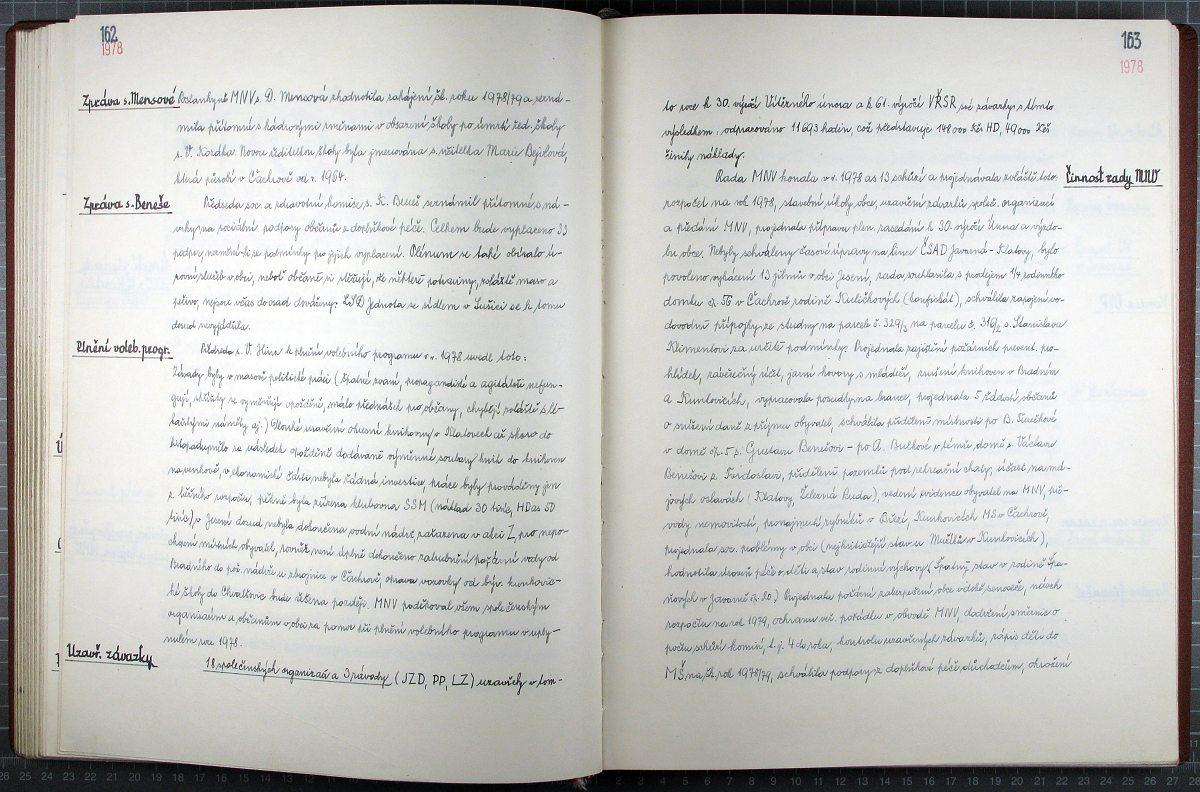 162
1978
Zpráva s. Mensové Poslankyně MNV s. D. Mensová zhodnotila zahájení šk. roku 1978/79 a sezná-
mila přítomné s kádrovými změnami v obsazení školy po úmrtí řed. školy
s. V. Kozdka. Novou ředitelkou školy byla jmenována s. učitelka Marie Bejvlová,
která působí v Čachrově od r. 1964.
Zpráva s. Beneše Předseda soc. a zdravotní komise s. K. Beneš seznámil přítomné s ná-
vrhy na sociální podpory občanů z doplňkové péče. Celkem bude vyplaceno 33
podpor, nezmění-li se podmínky pro jejich vyplacení. Plénum se také obíralo ú-
rovní služeb v obci, neboť občané si stěžují, že některé potraviny, zvláště maso a
pečivo, nejsou včas do osad dováženy. LSD Jednota se sídlem v Sušici se k tomu
dosud nevyjádřila.
Plnění voleb. progr. Předseda s. V. Hůza k plnění volebního programu v r. 1978 uvedl toto:
Závady byly v masově politické práci (špatné zvaní, propagandisté a agitátoři nefun-
gují, skříňky se vyměňují opožděně, málo přednášek pro občany, chybějí zvláště s lé-
kařskými náměty aj.) Dlouhé uzavření okresní knihovny v Klatovech až skoro do
listopadu mělo za následek opožděně dodávané výměnné soubory knih do knihoven
na venkově, v ekonomické části nebyla žádná investice, práce byly prováděny jen
z běžného rozpočtu, pěkně byla zřízena klubovna SSM (náklad 30 tisíc, HD as 50
tisíc), v Jesení dosud nebyla dokončena vodní nádrž zařazena v akci Z, pro nepo-
chopení místních obyvatel, rovněž není úplně dokončeno zatrubnění požární vody od
Bradného do pož. nádrže u zbrojnice v Čachrově, oprava vozovky od býv. kunkovic-
ké školy do Chvalšovic bude řešena později. MNV poděkoval všem společenským
organizacím a občanům v obci za pomoc při plnění volebního programu v uply-
nulém roce 1978.
Uzavř. závazky 18 společenských organizací a 3 závody (JZD, PP, LZ) uzavřely v tom-
163
1978
to roce k 30. výročí Vítězného února a k 61. výročí VŘSR své závazky s tímto
výsledkem: odpracováno 11693 hodin, což představuje 148 000 Kčs HD, 49 000 Kčs
činily náklady.
Činnost rady MNV Rada MNV konala v r. 1978 as 13 schůzí a projednávala zvláště toto:
rozpočet na rok 1978, stavební úkoly obce, uzavírání závazků společ. organizací
a předání MNV, projednala přípravu plen. zasedání k 30. výročí Února a výzdo-
bu obce. Nebyly schváleny časové úpravy na lince ČSAD Javorná - Klatovy, bylo
povoleno vykácení 13 jilmů v obci Jesení, rada souhlasila s prodejem 1/4 rodinného
domku čp. 56 v Čachrově rodině Kuličkových, schválila zapojení vo-
dovodní přípojky ze studny na parcele č. 329/3 na parcelu č. 316/2 s. Stanislavu
Klimentovi za určité podmínky. Projednala zajištění požárních prevent. pro-
hlídek, závěrečný účet, jarní hovory s mládeží, zrušení knihoven v Bradném
a Kunkovicích, vypracovala posudky na brance, projednala 5 žádostí občanů
o snížení daně z příjmu obyvatel, schválila přidělení místnosti po B. Turečkové
v domě čp. 5 s. Gustavu Benešovi - po A. Bulkové v témž domě s. Václavu
Benešovi z Tvrdoslavi, přidělení pozemků pod rekreační chaty, účast na má-
jových oslavách (Klatovy, Železná Ruda), vedení evidence obyvatel na MNV, pře-
vody nemovitostí, pronajmutí rybníků v Březí, Kunkovicích MS v Čachrově,
projednala soc. problémy v obci (nejkritičtější stav u Mužíků v Kunkovicích),
hodnotila úroveň péče o děti a stav rodinné výchovy. (Špatný stav v rodině Špa-
ňových v Javorné čp. 80.) Projednala požární zabezpečení obce v době senoseče, návrh
rozpočtu na rok 1979, ochranu veř. pořádku v obvodě MNV, dodržení směrnic o
počtu schůzí komisí, t. j. 4 do roka, kontrolu uzavřených závazků, zápis dětí do
MŠ na šk. rok 1978/79, schválila podpory z doplňkové péče důchodcům, ohrožení